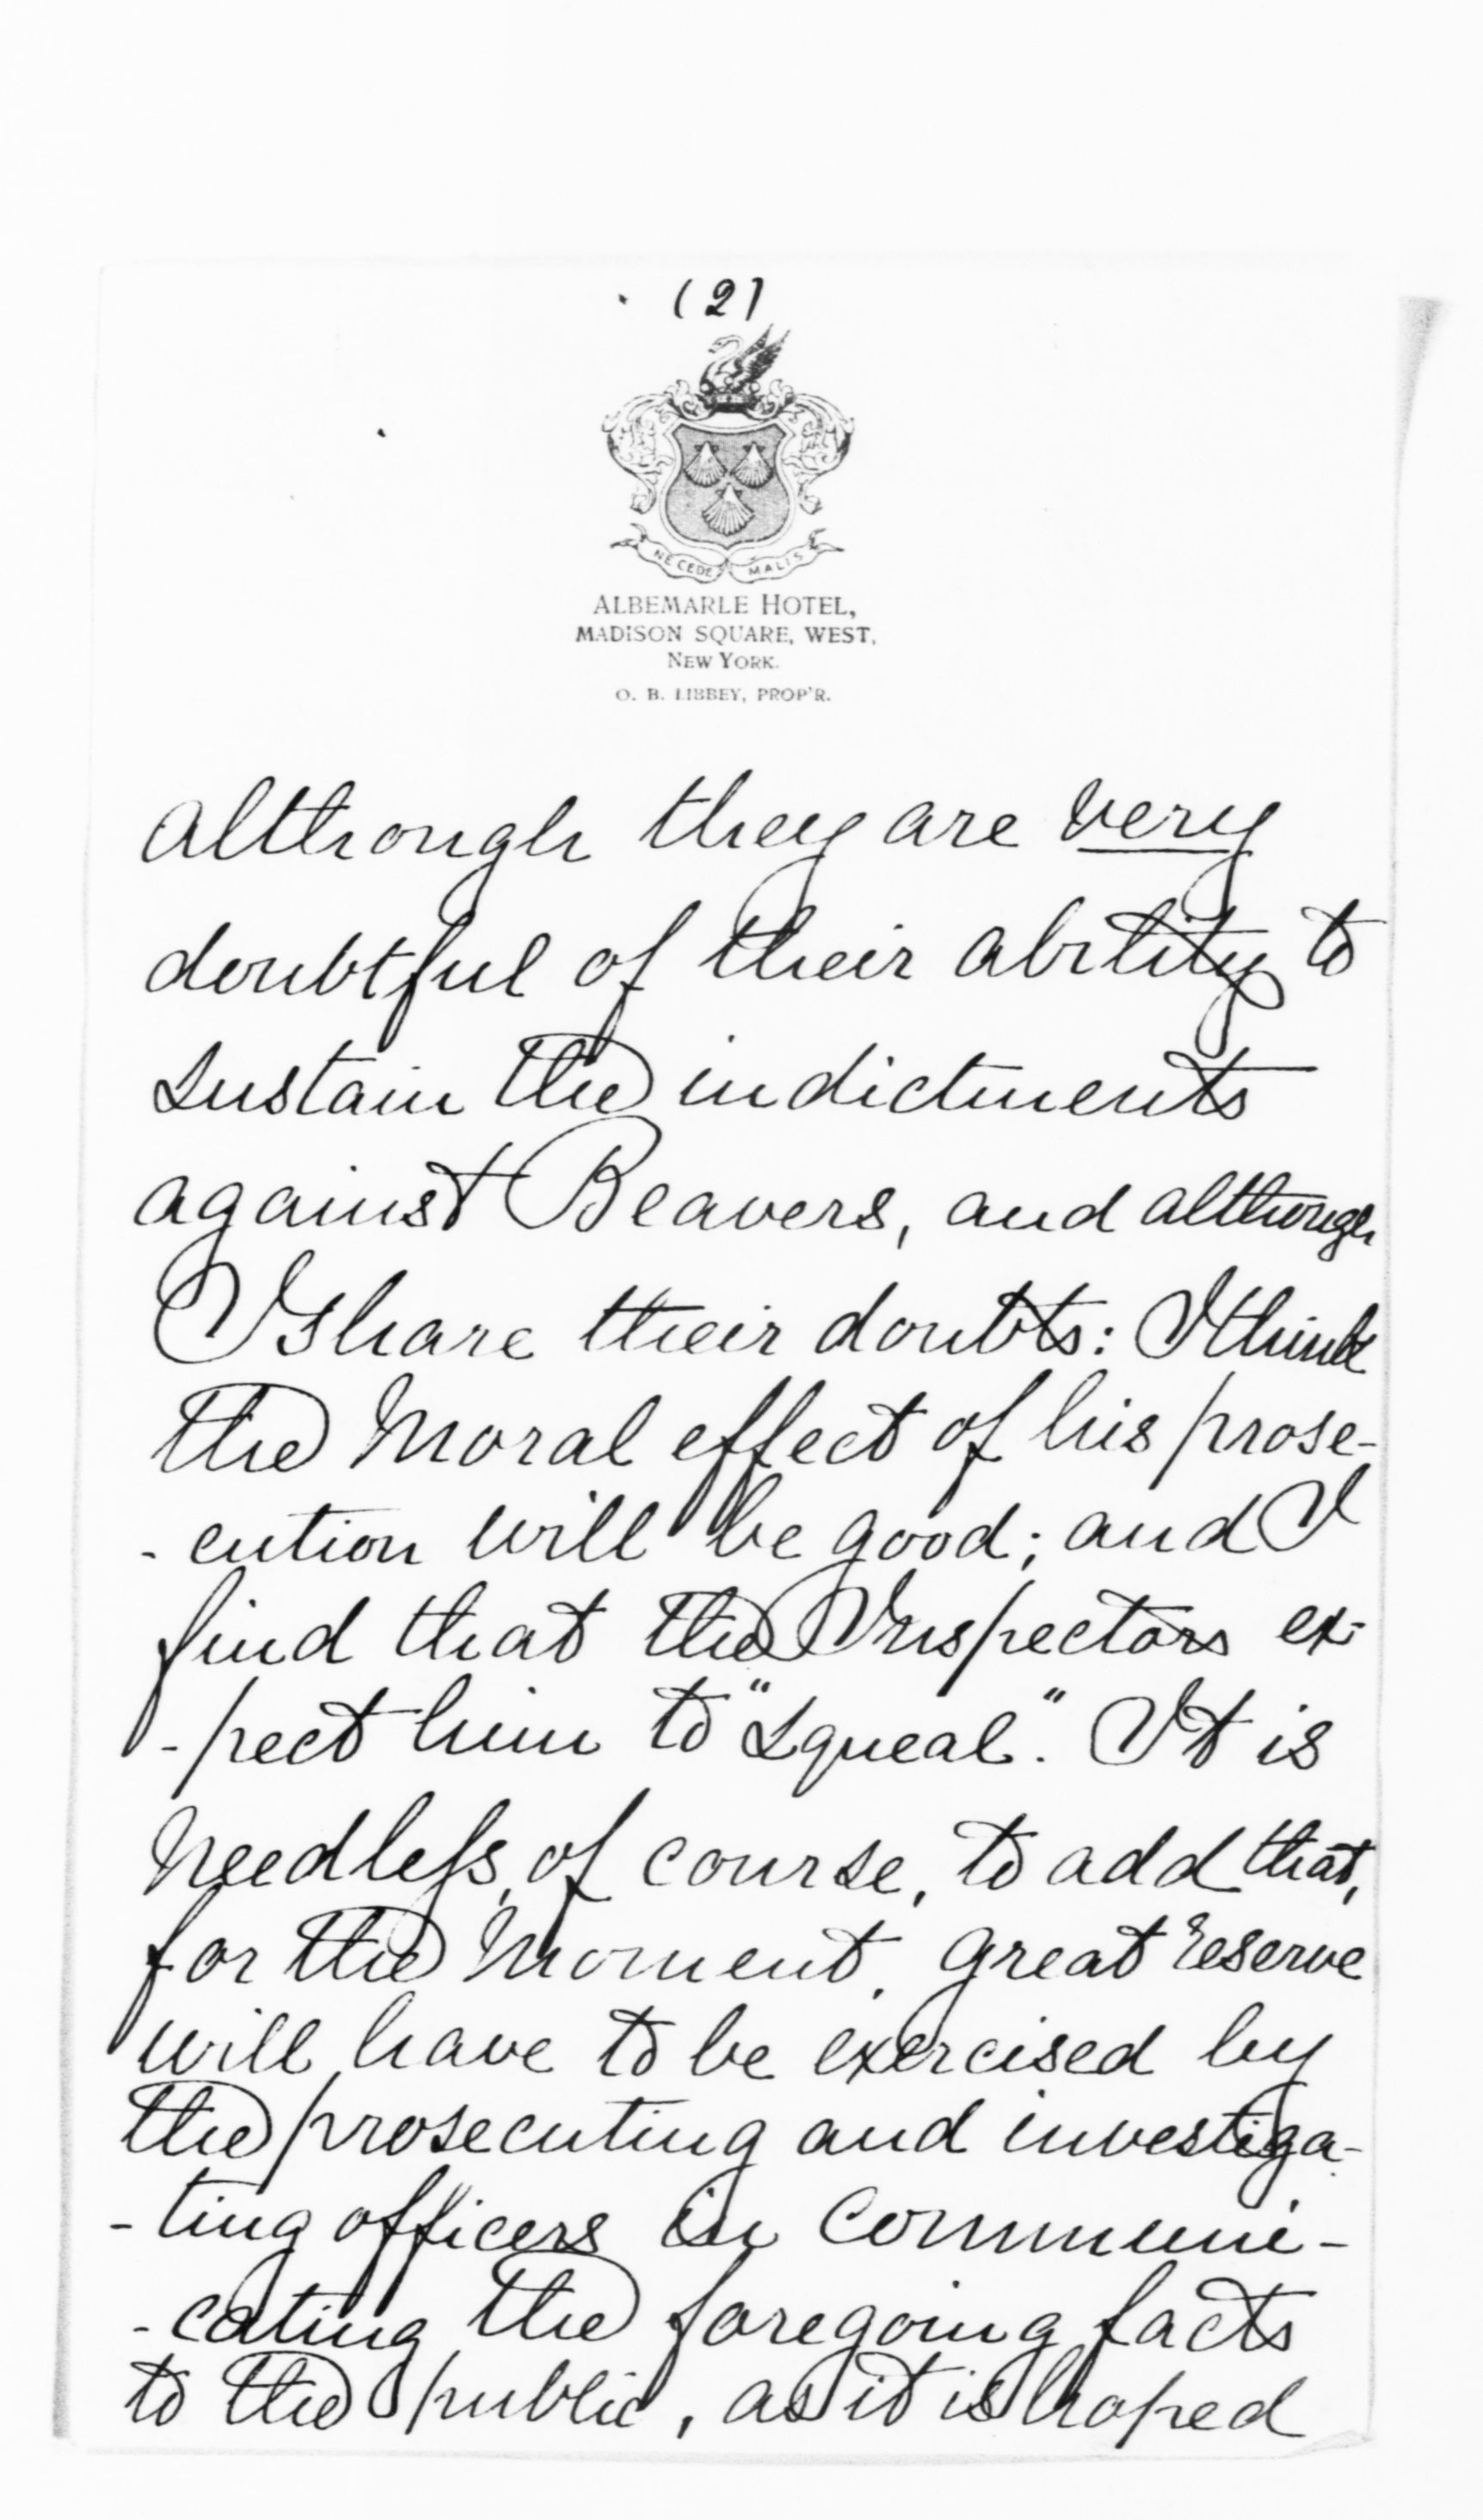 (2)
NE CEDE MALIS
ALBEMARLE HOTEL,
MADISON SQUARE, WEST,
NEW YORK.
O. B. LIBBEY, PROP'R.
although they are very
doubtful of their ability to
sustain the indictments
against Beavers, and although
I share their doubts: I think
the moral effect of his prose-
- cution will be good; and I
find that the Inspectors ex-
- pect him to "squeal". It is
needless, of course, to add that,
for the moment, great reserve
will have to be exercised by
the prosecuting and investiga-
- ting officers in communi-
- cating the foregoing facts
to the public, as it is hoped